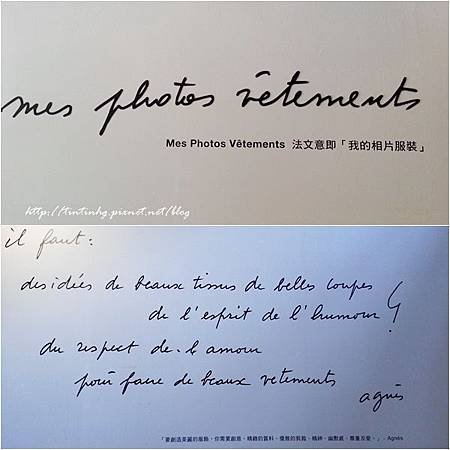 mes photos vêtements
Mes Photos Vêtements 法文意即「我的相片服裝」
http://tintinhg.pixnet.net/blog
il faut:
des idées de beaux tissus de belles coupes
de l'esprit de l'humour
du respect de l'amour
pour faire de beaux vetements
agnès
「要創造美麗的服飾，你需要創意、精緻的質料、優雅的剪裁、精神、幽默感、尊重及愛。」- Agnès